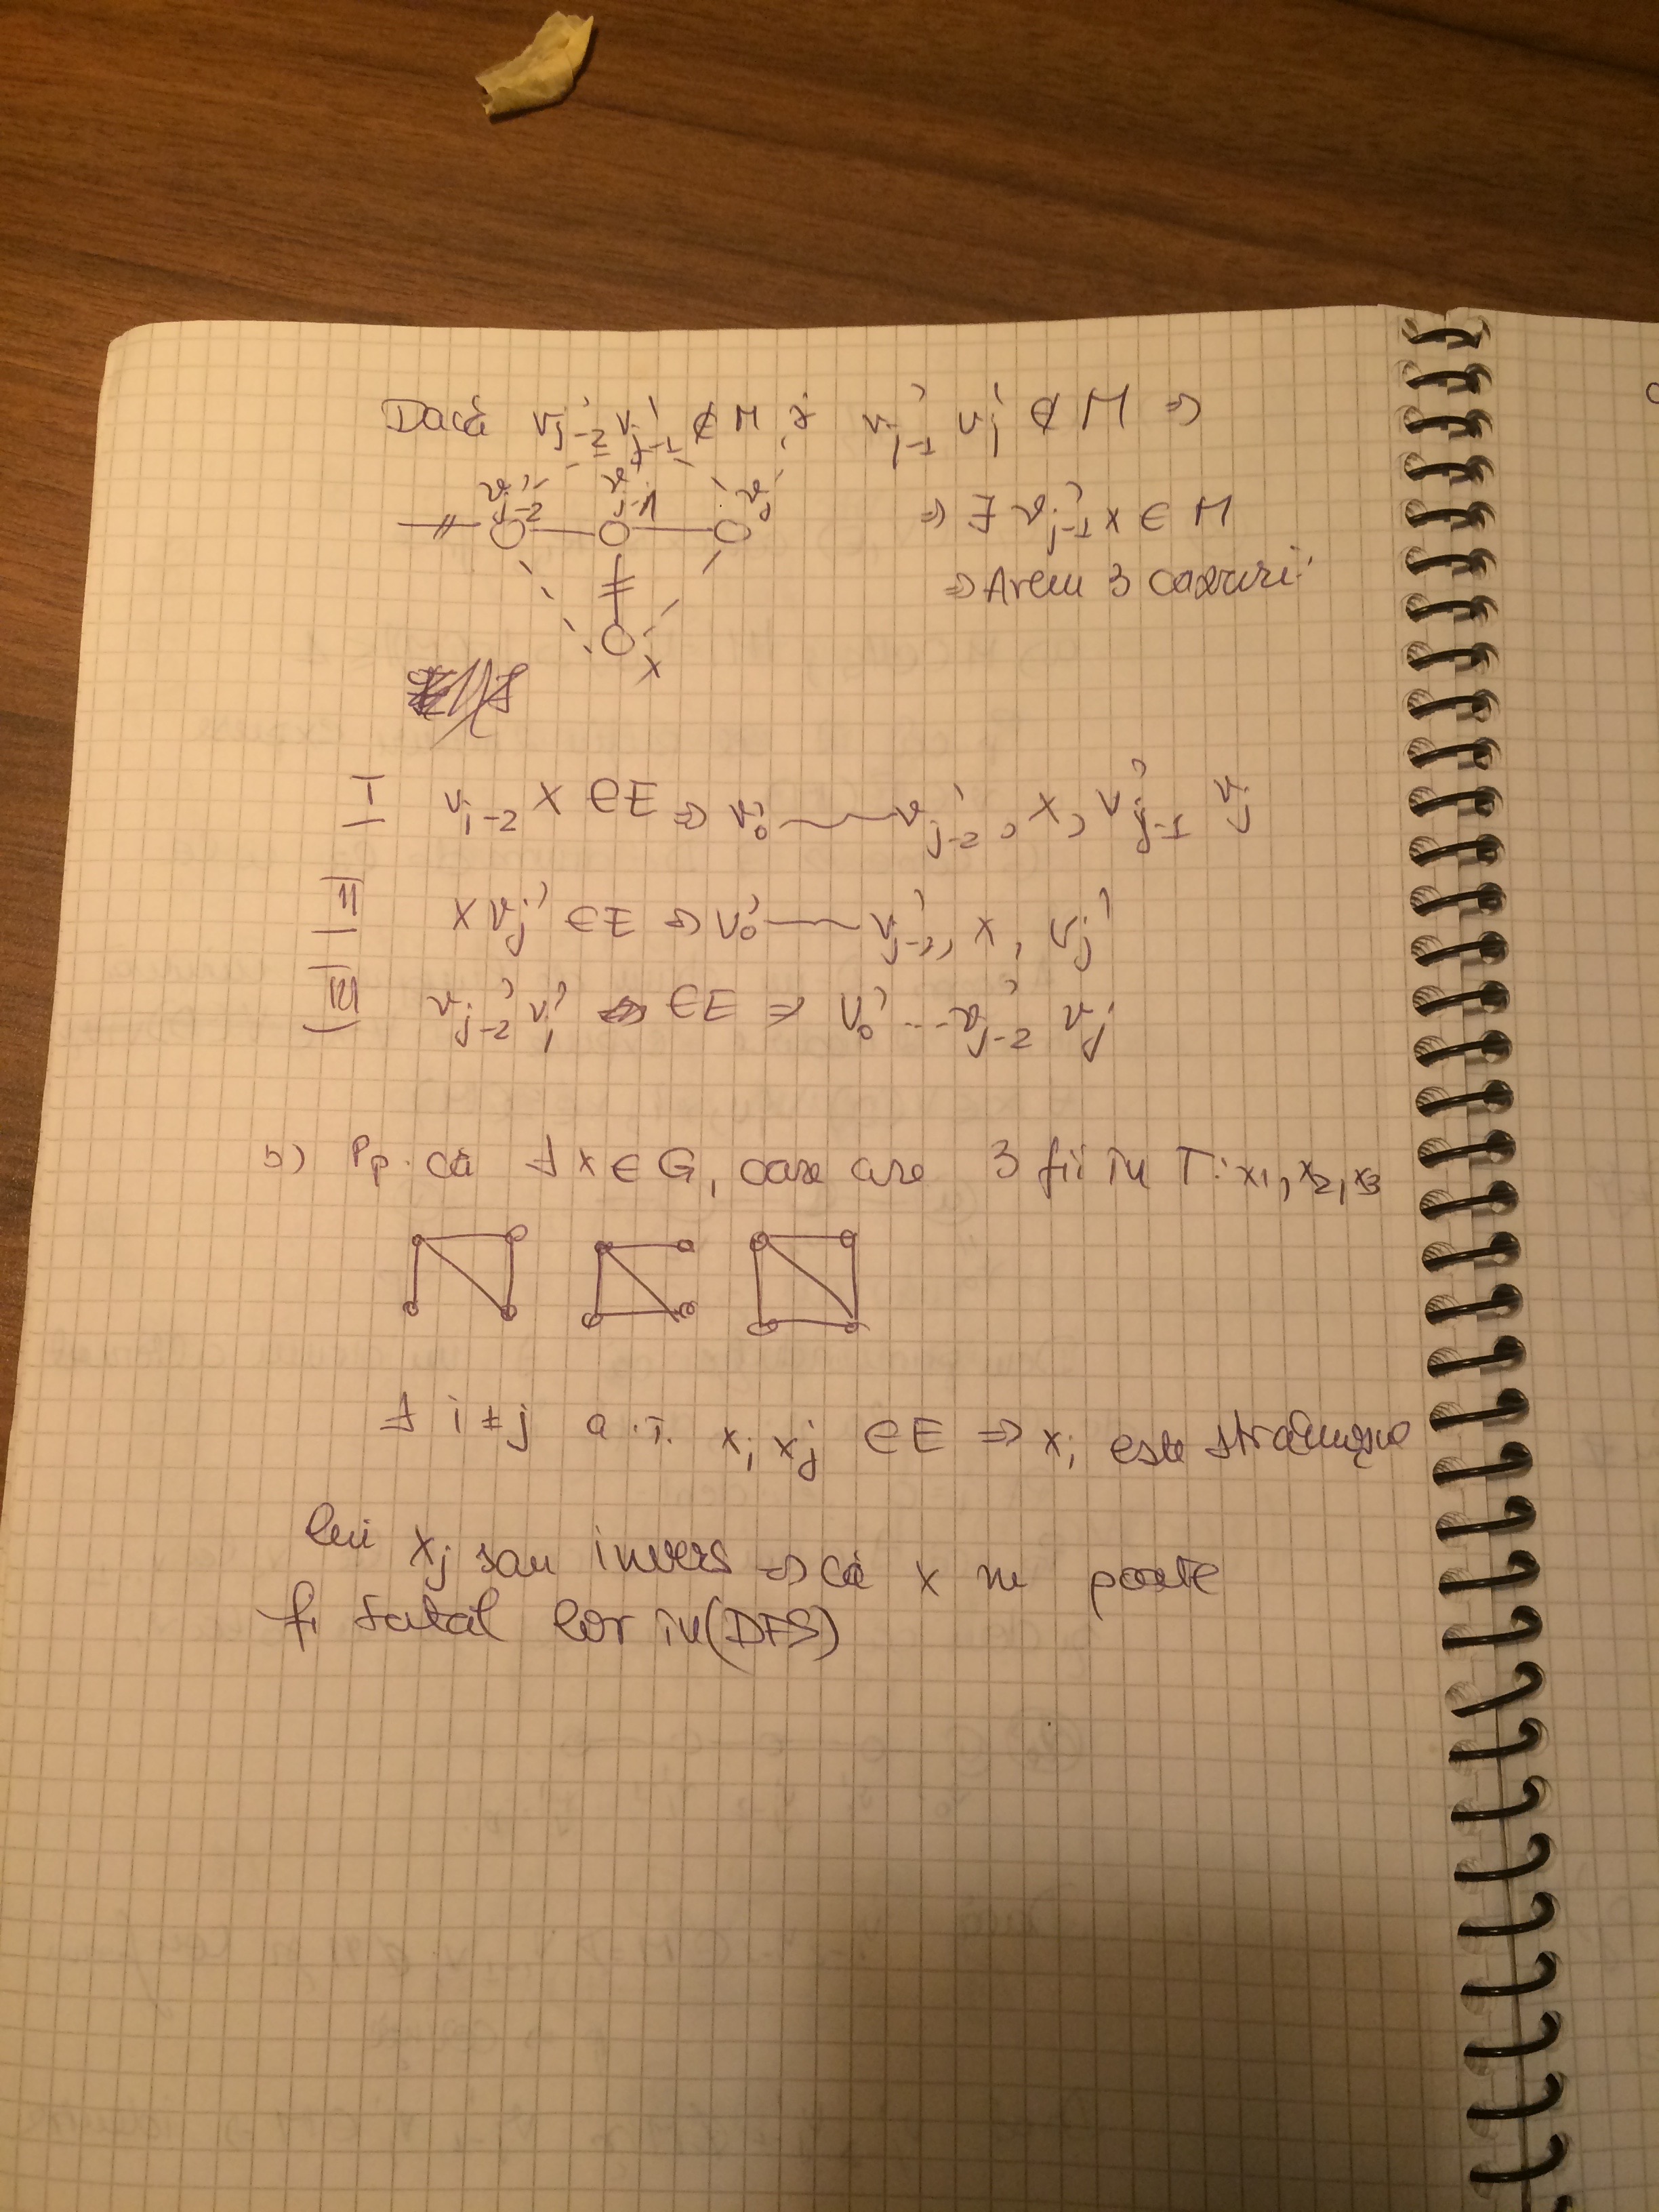 Dacă v'j-2 v'j-1 ∉ M și v'j-1 v'j ∉ M ⇒
v'j-2 v'j-1 v'j
⇒ ∃ v'j-1 x ∈ M
⇒ Avem 3 cazuri:
x
I vj-2 x ∈ E ⇒ v'0 v'j-2, x, v'j-1 vj
II x v'j ∈ E ⇒ v'0 v'j-2, x, v'j
III v'j-2 v'j ∈ E ⇒ v'0 ... v'j-2 vj
b) Pp. că ∃ x ∈ G, care are 3 fii în T: x1, x2, x3
∃ i ≠ j a.î. xi xj ∈ E ⇒ xi este strămoșul
lui xj sau invers ⇒ că x nu poate
fi tatăl lor în (DFS)